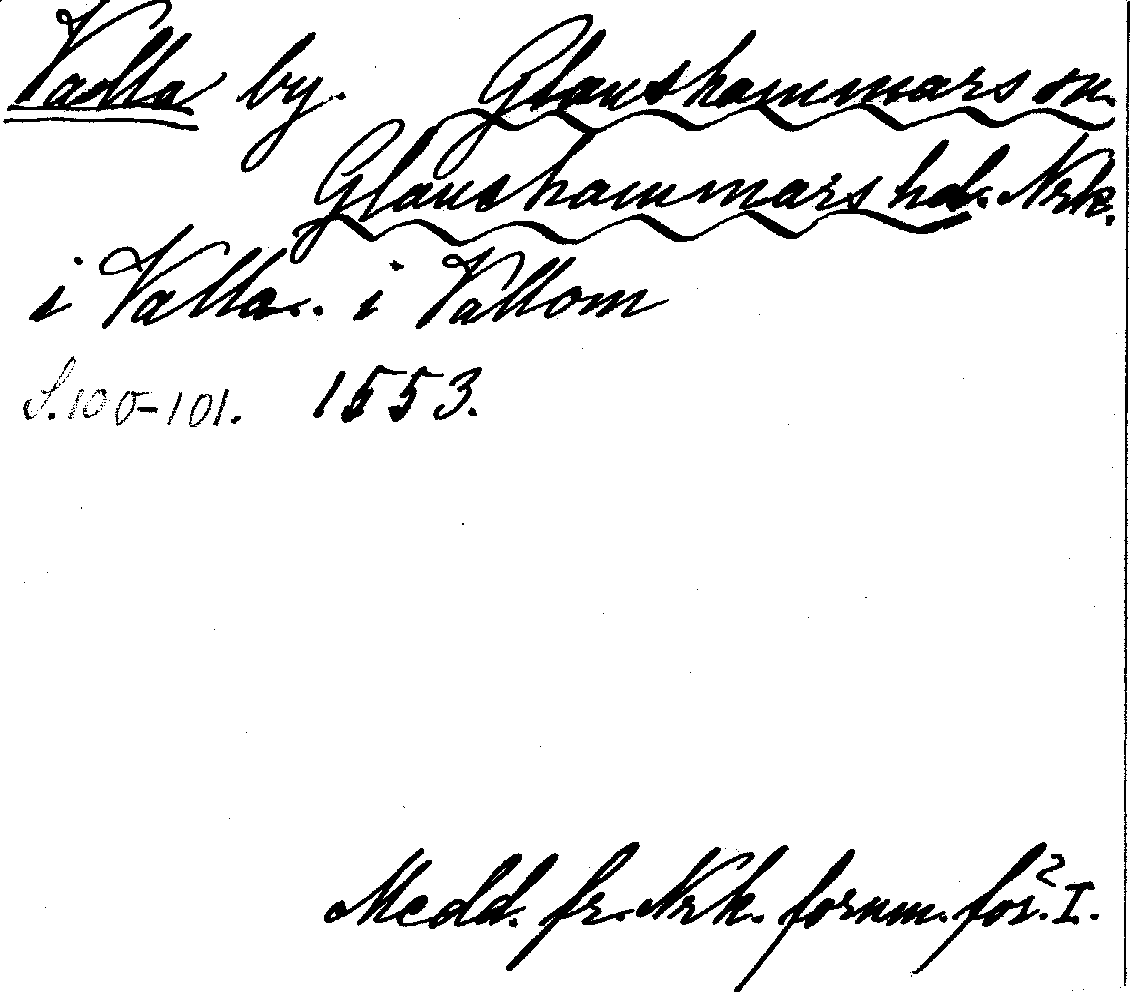 Valla by. Glanshammars sn.
Glanshammars hd. Nrk.
i Valla. i Vallom
S. 100-101. 1553.
Medd. fr. Nrk. fornm. för. I.